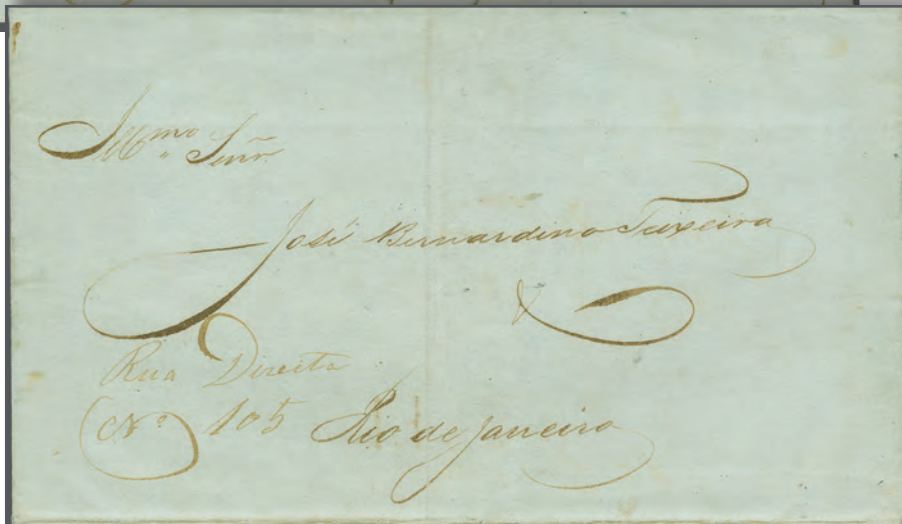 Illmo Senr.
José Bernardino Teixeira
&
Rua Direita
No 105 Rio de Janeiro